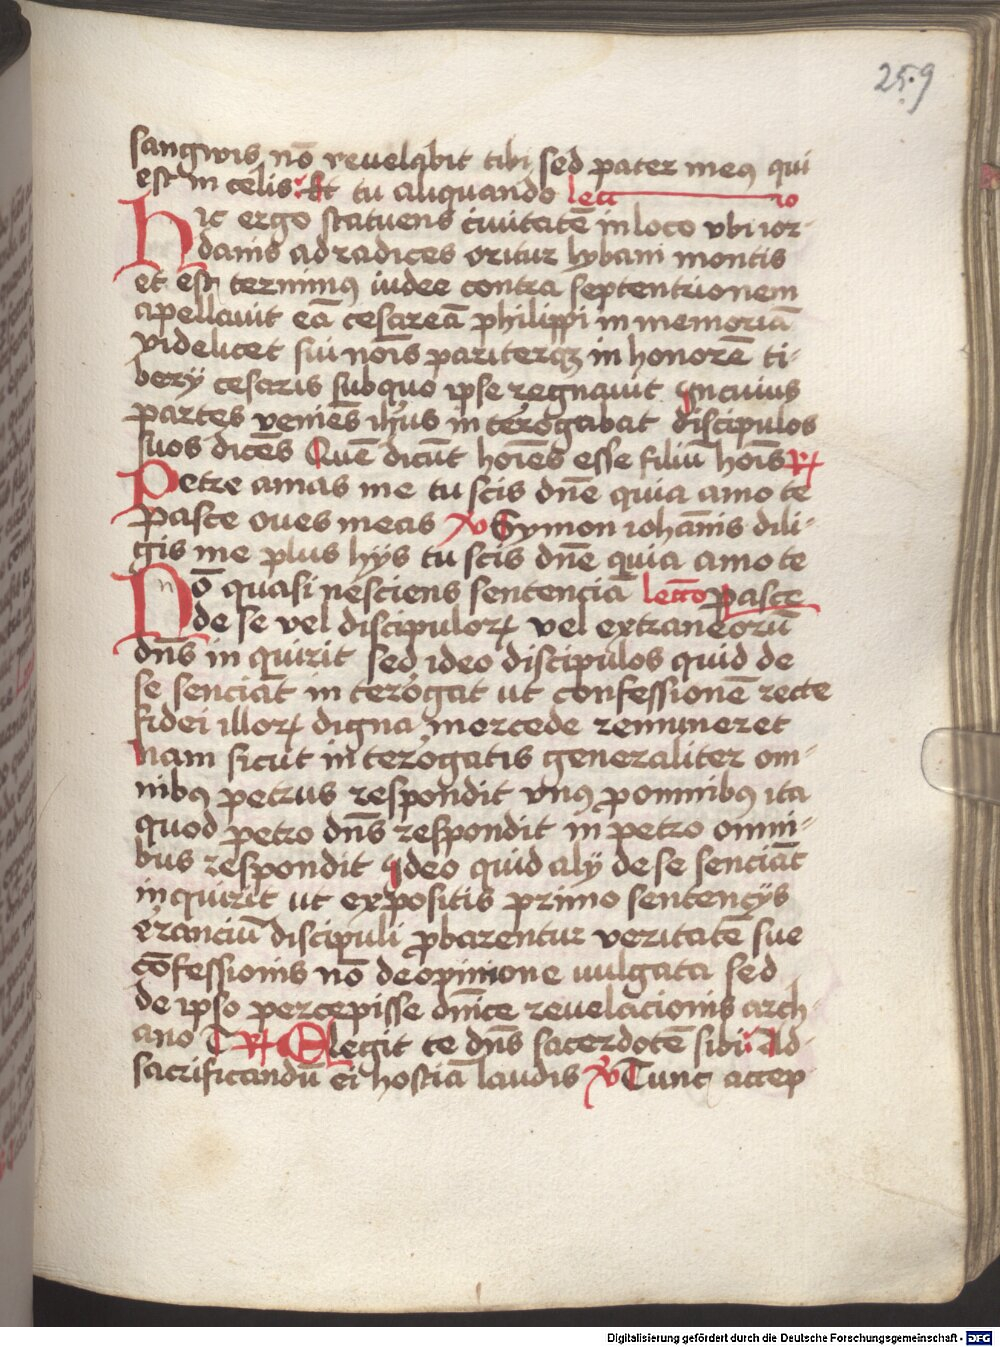 259
sangwis nō reuelabit tibi sed pater meꝰ qui
est in celis Et tu aliquando lectio
Hic ergo statuens ciuitatē in loco vbi ior-
danis ad radices oritur lybani montis
et est terminꝰ iudee contra septentrionem
apellauit eā cesareā philippi in memoriā
videlicet sui nōis pariterqꝫ in honorē ti-
berij cesaris sub quo ipse regnauit In cuius
partes veniēs ihūs interogabat discipulos
suos dicēs Quē dicūt hoīes esse filiū hoīs ℟
Petre amas me tu scis dn̄e quia amo te
Pasce oues meas ℣ Symon iohānis dili-
gis me plus hijs tu scis dn̄e quia amo te
Nō quasi nesciens sentenciā lectō Pasce
de se vel discipuloꝝ vel extraneorū
dn̄s inquirit sed ideo discipulos quid de
se senciāt interogat ut confessionē recte
fidei illoꝝ digna mercede remuneret
Nam sicut interogatis generaliter om-
nibꝰ petrus respondit vnꝰ pro omnibꝰ ita
quod petro dn̄s respondit in petro omni-
bus respondit Ideo quid alij de se senciāt
inquirit ut expositis primo sentencijs
eranciū discipuli ꝓbarentur veritatē sue
cōfessionis nō de opinione uulgata sed
de ipso percepisse dn̄ice reuelacionis arch-
ano T ℟ Elegit te dn̄s sacerdotē sibi Ad-
sacrificandū ei hostiā laudis ℣ Tunc accep
Digitalisierung gefördert durch die Deutsche Forschungsgemeinschaft - DFG